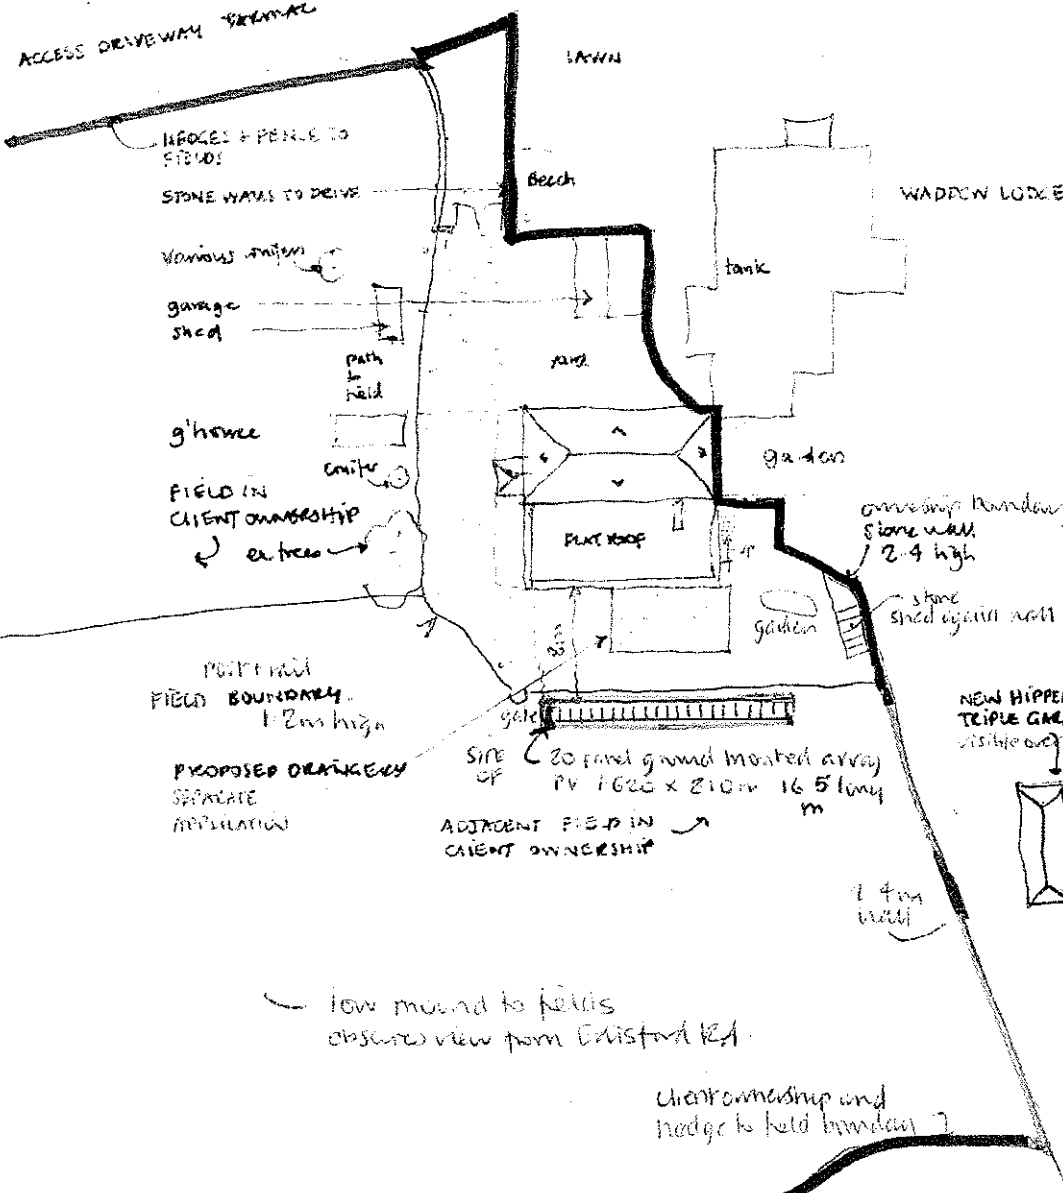 ACCESS DRIVEWAY TARMAC
LAWN
HEDGES + FENCE TO
FIELDS
STONE WALLS TO DRIVE
Beech
WADDOW LODGE
Various
tank
garage
shed
path
to
field
yard
g'house
garden
conifer
FIELD IN
CLIENT OWNERSHIP
ex trees
FLAT ROOF
ownership boundary
stone wall
2.4 high
stone
shed against wall
garden
post + rail
FIELD BOUNDARY
1.2m high
gate
NEW HIPPE
TRIPLE GAR
visible over
PROPOSED ORANGERY
SEPARATE
APPLICATION
SITE
OF
20 panel ground mounted array
PV 1620 x 810m 16 5 long
m
ADJACENT FIELD IN
CLIENT OWNERSHIP
wall
low mound to fields
obscures view from Edisford Rd.
Client ownership and
hedge to field boundary